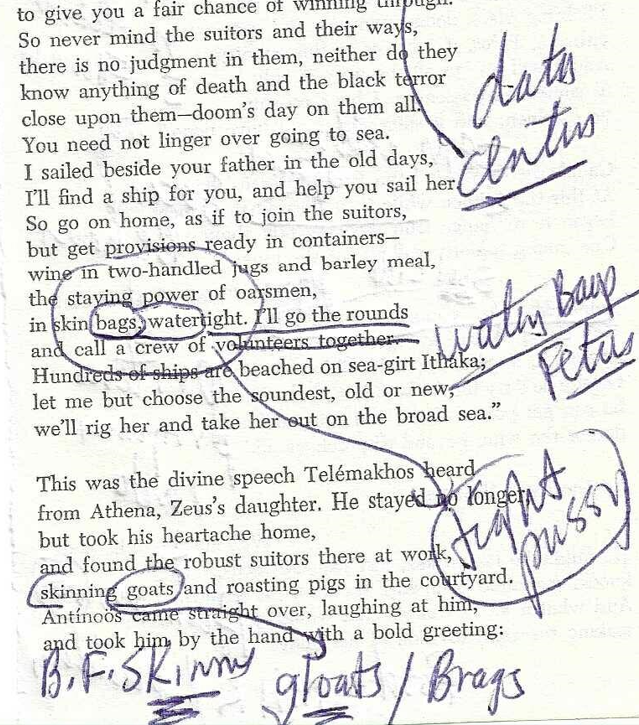 to give you a fair chance of winning through.
So never mind the suitors and their ways,
there is no judgment in them, neither do they
know anything of death and the black terror
close upon them—doom's day on them all.
You need not linger over going to sea.
I sailed beside your father in the old days,
I'll find a ship for you, and help you sail her.
So go on home, as if to join the suitors,
but get provisions ready in containers—
wine in two-handled jugs and barley meal,
the staying power of oarsmen,
in skin bags, watertight. I'll go the rounds
and call a crew of volunteers together.
Hundreds of ships are beached on sea-girt Ithaka;
let me but choose the soundest, old or new,
we'll rig her and take her out on the broad sea."
This was the divine speech Telémakhos heard
from Athena, Zeus's daughter. He stayed no longer,
but took his heartache home,
and found the robust suitors there at work,
skinning goats and roasting pigs in the courtyard.
Antínoös came straight over, laughing at him,
and took him by the hand with a bold greeting:
data
water Bags
Fetus
tight
pussy
B.F. Skinny
gloats / Brags